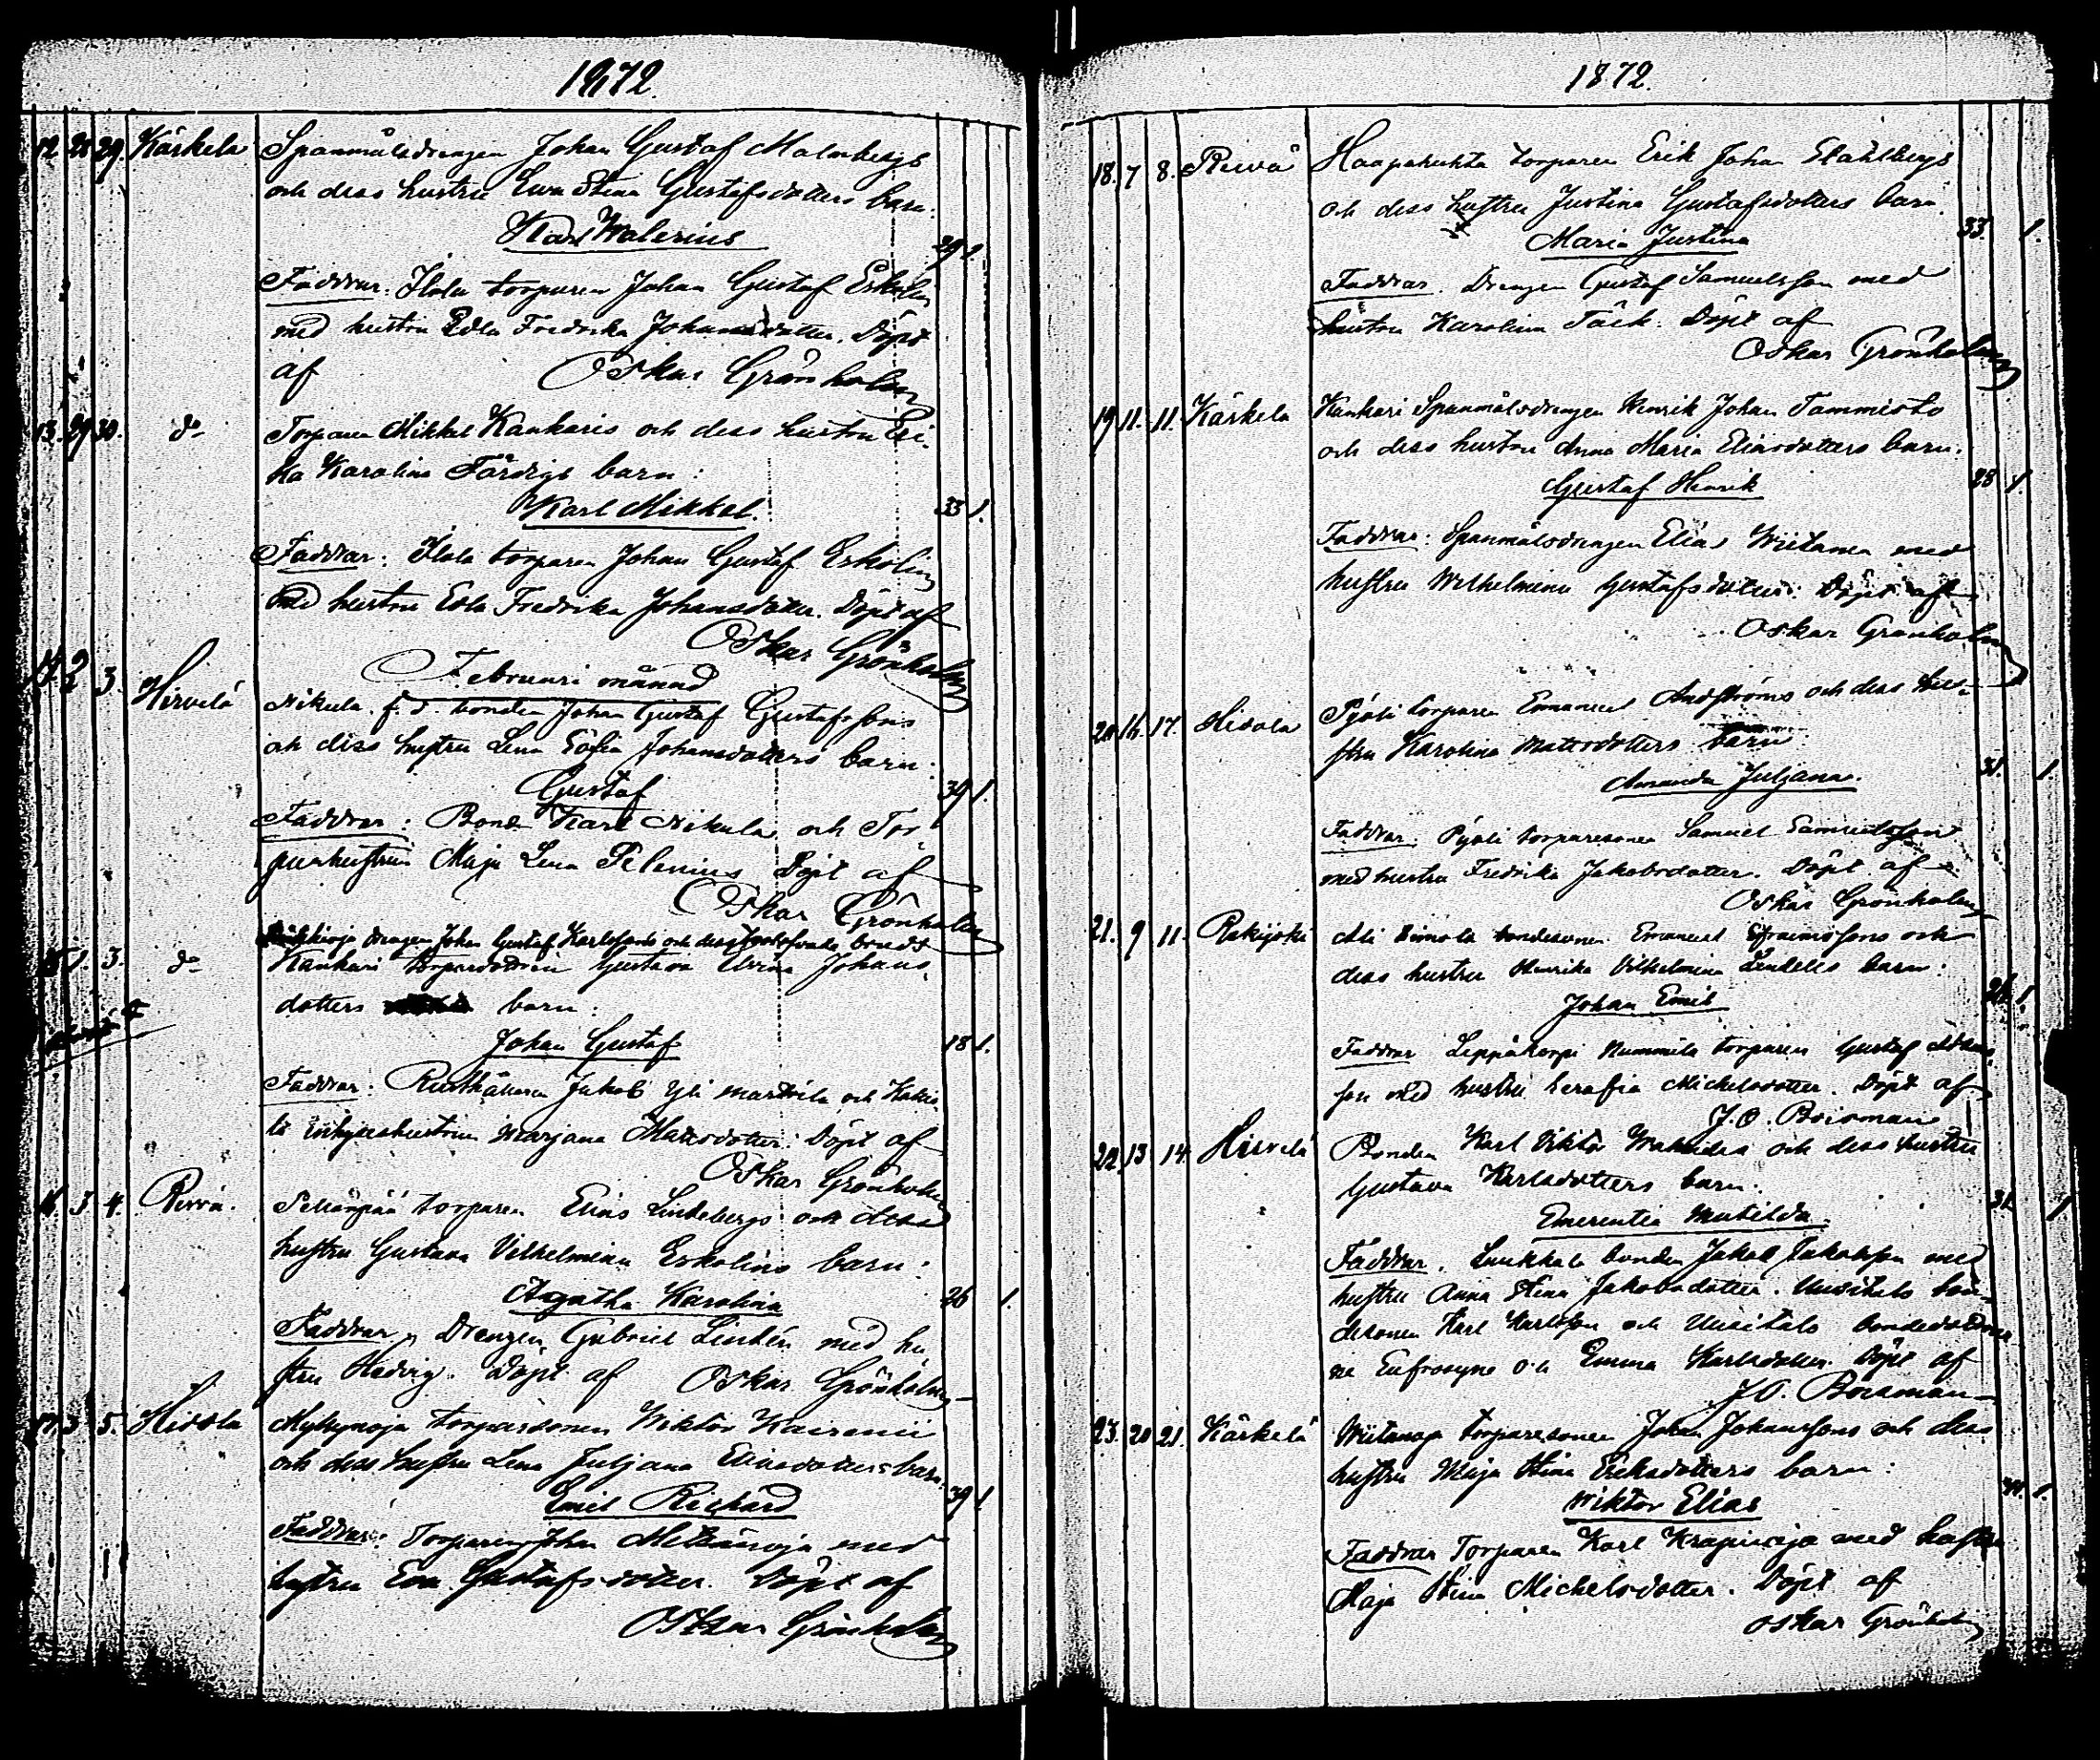 1872.
12 28 29. Kärkela Spanmålsdrengen Johan Gustaf Malmbergs
och dess hustru Ewa Stina Gustafsdotters barn:
Karl Walerius
29 1.
Faddrar: Ilola torparen Johan Gustaf Eskolin
med hustru Edla Fredrika Johansdotter. Döpt
af Oskar Grönholm
13. 29 30. do Torparen Mikkel Kankaris och dess hustru Eri-
ka Karolina Färdigs barn:
Karl Mikkel.
33 1.
Faddrar: Ilola torparen Johan Gustaf Eskolin
med hustru Edla Fredrika Johansdotter. Döpt af
Oskar Grönholm
Februari månad
14. 2 3. Hirvelä Nikula f. d. bonden Johan Gustaf Gustafssons
och dess hustru Lena Sofia Johansdotters barn:
Gustaf
39 1.
Faddrar: Bond. Karl Nikula och Tor-
parehustrun Maja Lena Pelenius Döpt af
Oskar Grönholm
drengen Johan Gustaf Karlssons och dess trolofvade brud
1. 3. do Kankari torparedottren Gustava Johans-
dotters barn:
Johan Gustaf
18 1.
Faddrar: Rusthållaren Jakob Yli Marttila och
inhyseshustrun Marjana Matsdotter. Döpt af
Oskar Grönholm
16. 3. 4. Peivä. torparen Elias Lindebergs och dess
hustru Gustava Vilhelmina Eskolins barn:
Agatha Karolina
26 1.
Faddrar, Drengen Gabriel Lindén med hu-
stru Hedvig. Döpt af Oskar Grönholm
17. 3 5. Hirsla Myllynoja torparesonen Wiktor
och dess hustru Lena Juljana Eliasdotters barn.
Emil Richard
39 1
Faddrar: Torparen Johan Metsänoja med
hustru Eva Gustafsdotter. Döpt af
Oskar Grönholm
1872.
18. 7 8. Peivä Haapahuhta torparen Erik Johan Stählbergs
och dess hustru Justina Gustafsdotters barn
Maria Justina
33. 1.
Faddrar. Drengen Gustaf Samuelsson med
hustru Karolina Täck. Döpt af
Oskar Grönholm
19 11. 11. Kärkela Kankari Spanmålsdrengen Henrik Johan Tammisto
och dess hustru Anna Maria Eliasdotters barn.
Gustaf Henrik
28 1.
Faddrar: Spanmålsdrengen Elias Wiitanen med
hustru Wilhelmina Gustafsdotter: Döpt af
Oskar Grönholm
20. 16. 17. Hirsla Pyöli torparen Emanuel Andströms och dess hu-
stru Karolina Matsdotters barn:
Amanda Juljana.
31. 1.
Faddrar. Pyöli torparesonen Samuel Samuelsson
med hustru Fredrika Jakobsdotter. Döpt af
Oskar Grönholm
21. 9 11. Rekijoki Ali Simola bondesonen Emanuel Efraimssons och
dess hustru Henrika Vilhelmina Lindells barn:
Johan Emil
1
Faddrar Leppäkorpi Nummela torparen Gustaf
son med hustru Serafia Michelsdotter. Döpt af
J. O. Boisman
22 13 14. Hirvelä Bonden Karl Viktor och dess hustru
Gustava Karlsdotters barn.
Emerentia Matilda.
31. 1
Faddrar. bonden Jakob Jakobsson med
hustru Anna Stina Jakobsdotter. Uusitalo bon-
desonen Karl Karlsson och Uusitalo bondedöttrar-
ne Eufrosyne och Emma Karlsdotter. Döpt af
J. O. Boisman
23. 20 21. Kärkelä Wiitanoja torparesonen Johan Johanssons och dess
hustru Maja Stina Eriksdotters barn:
Wiktor Elias
1.
Faddrar Torparen Karl Krapinoja med hustru
Maja Stina Michelsdotter. Döpt af
Oskar Grönholm